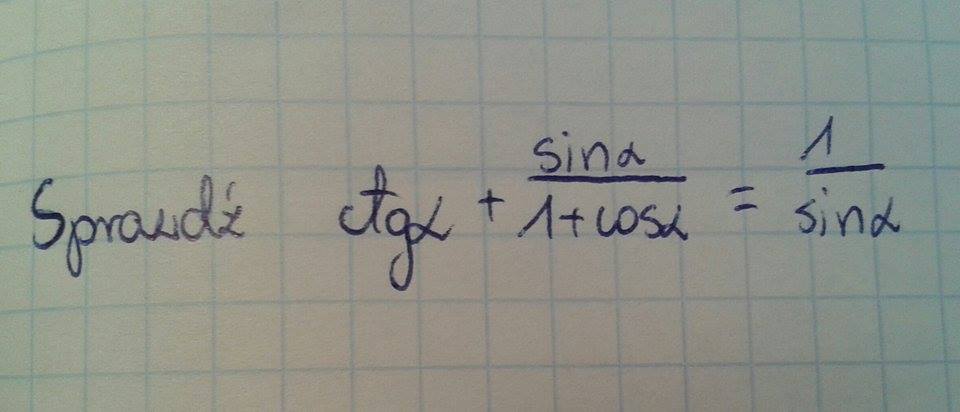 Sprawdź ctgα + \frac{sinα}{1+cosα} = \frac{1}{sinα}